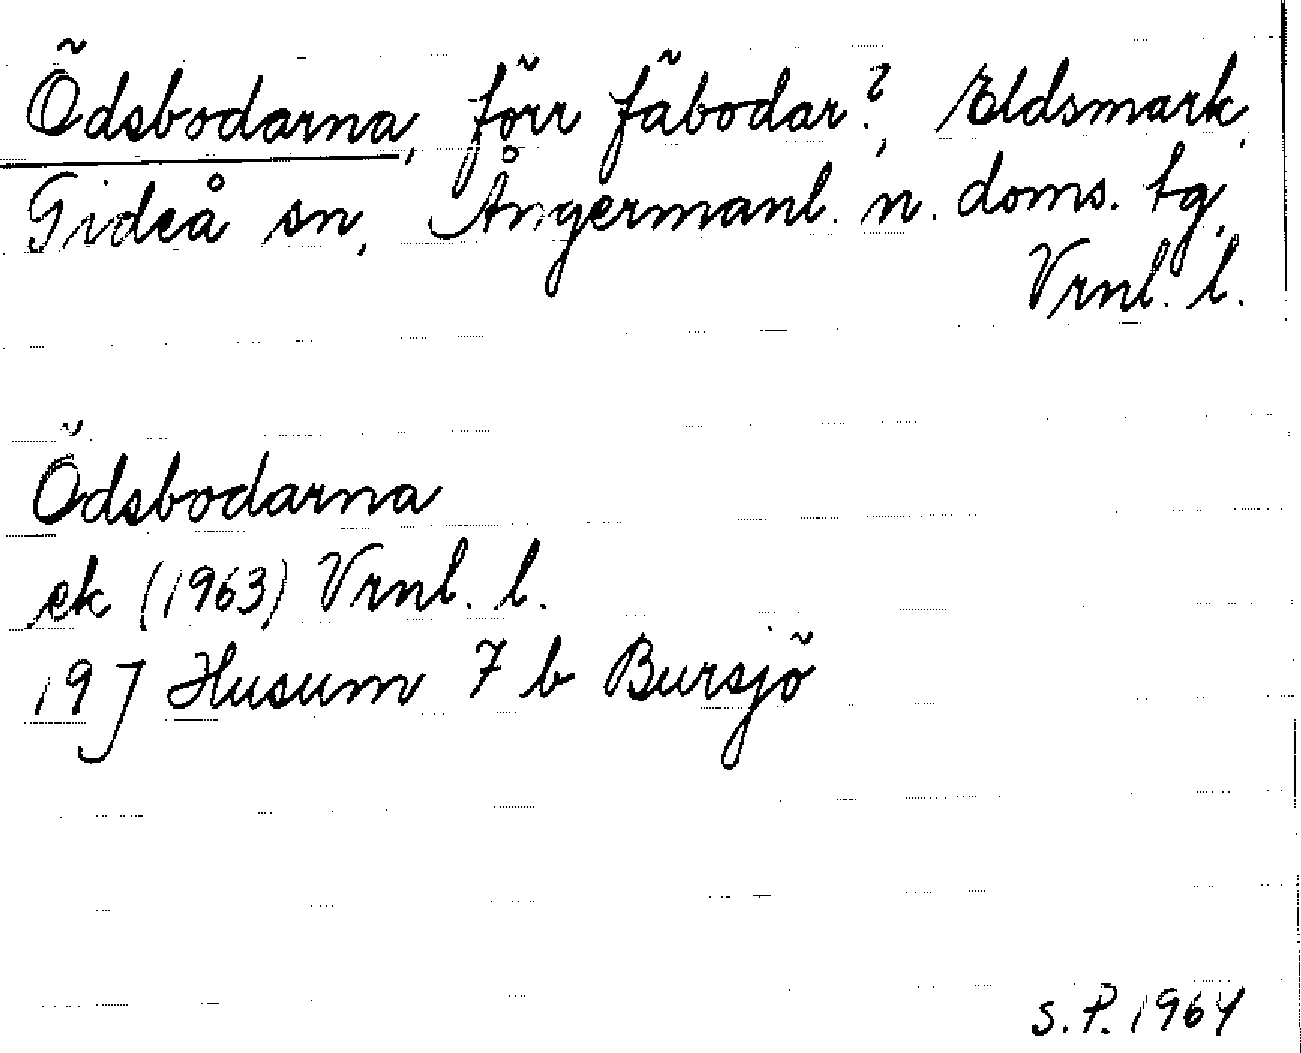 Ödsbodarna, förr fäbodar?, Eldsmark,
Gideå sn, Ångermanl. n. doms. tg,
Vrnl. l.
Ödsbodarna
ek (1963) Vrnl. l.
19 J Husum 7 b Bursjö
S. P. 1964